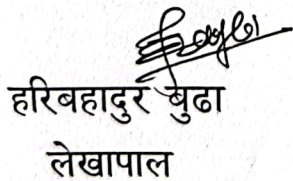 हरिबहादुर बुढा
लेखापाल